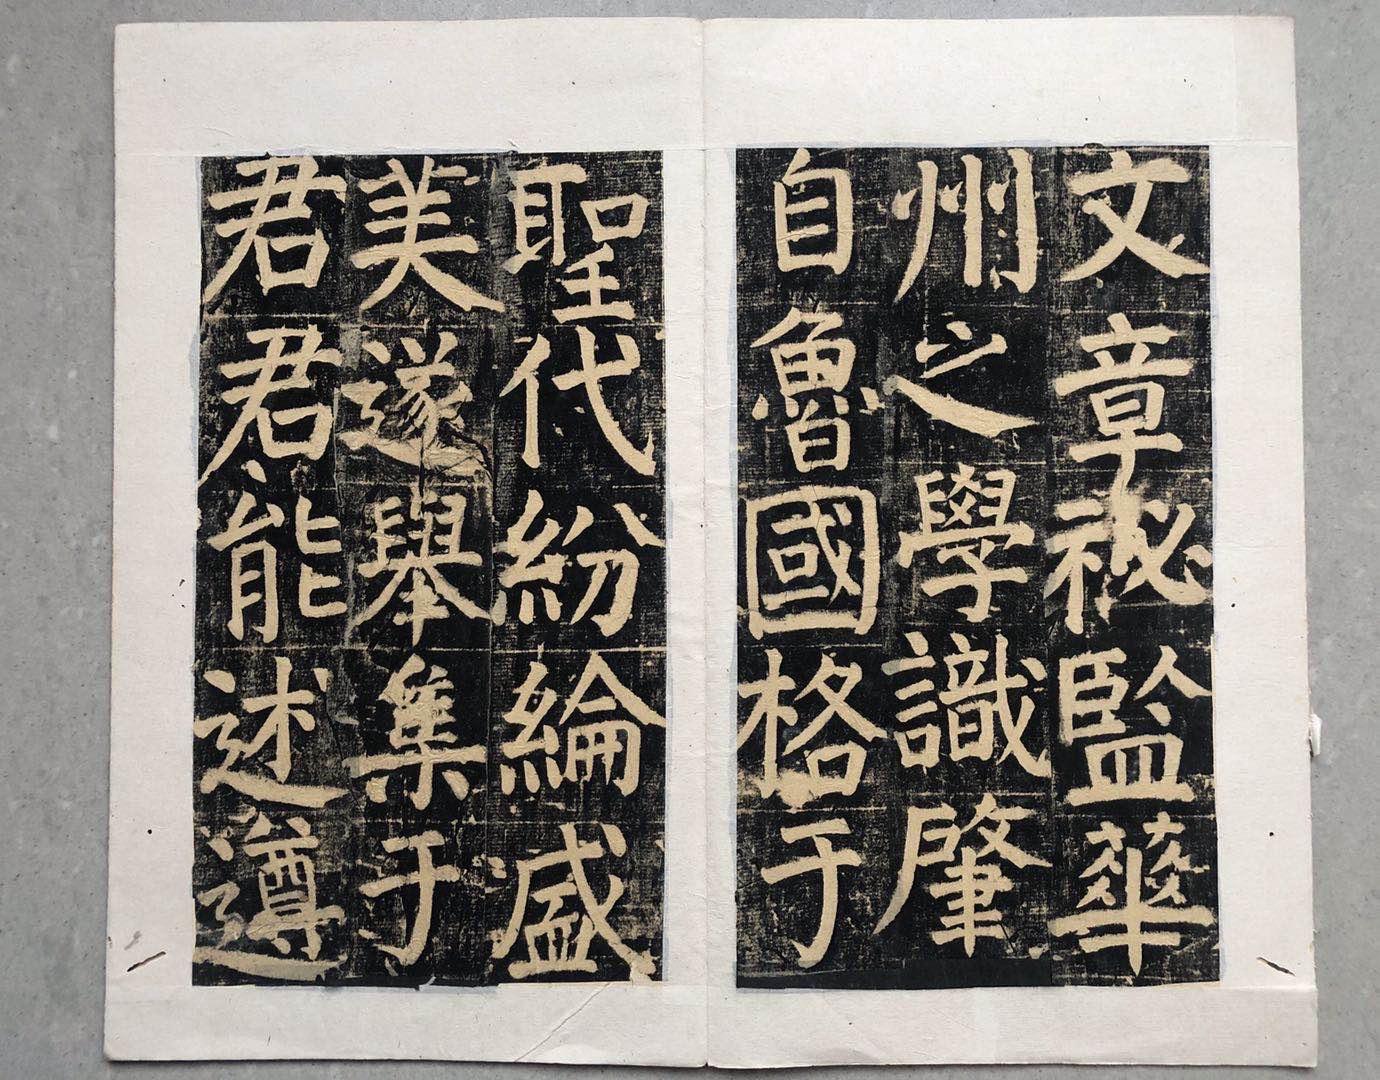 文章秘監華
州之學識肇
自魯國格于
聖代紛綸盛
美遂舉集于
君君能述遵